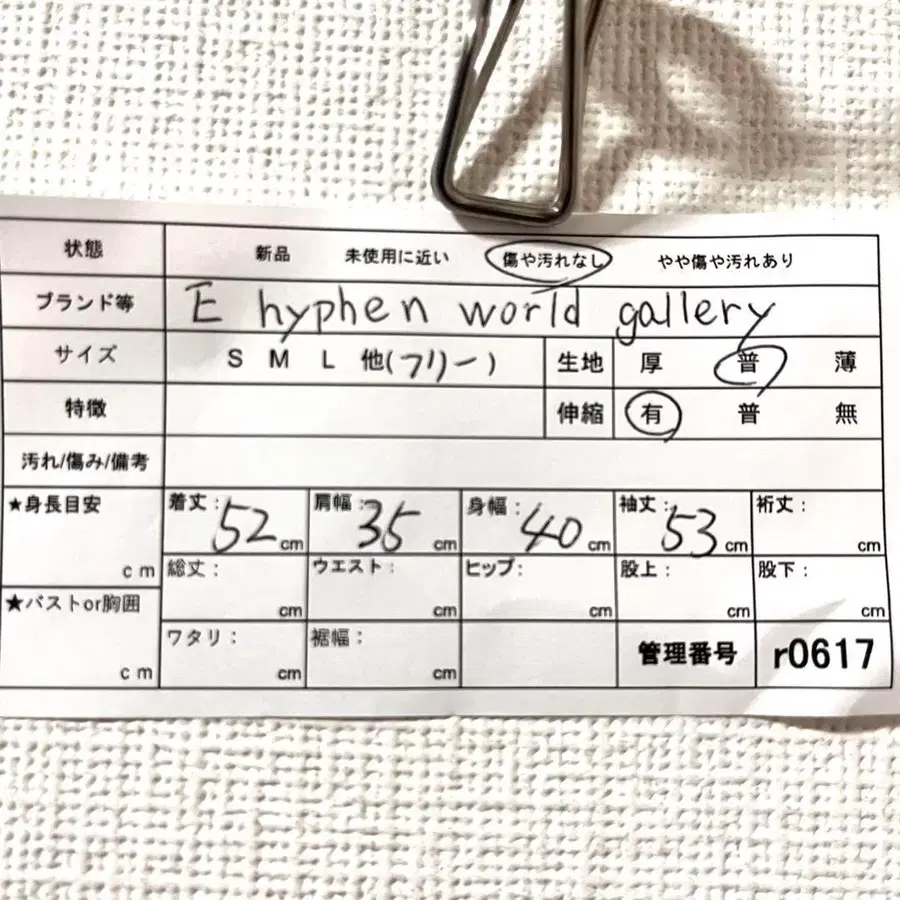 状態 新品 未使用に近い 傷や汚れなし やや傷や汚れあり
ブランド等 E hyphen world gallery
サイズ S M L 他(フリー) 生地 厚 普 薄
特徴 伸縮 有 普 無
汚れ/傷み/備考
★身長目安 cm 着丈: 52 cm 肩幅: 35 cm 身幅: 40 cm 袖丈: 53 cm 裄丈: cm
総丈: cm ウエスト: cm ヒップ: cm 股上: cm 股下: cm
★バストor胸囲 cm ワタリ: cm 裾幅: cm 管理番号 r0617